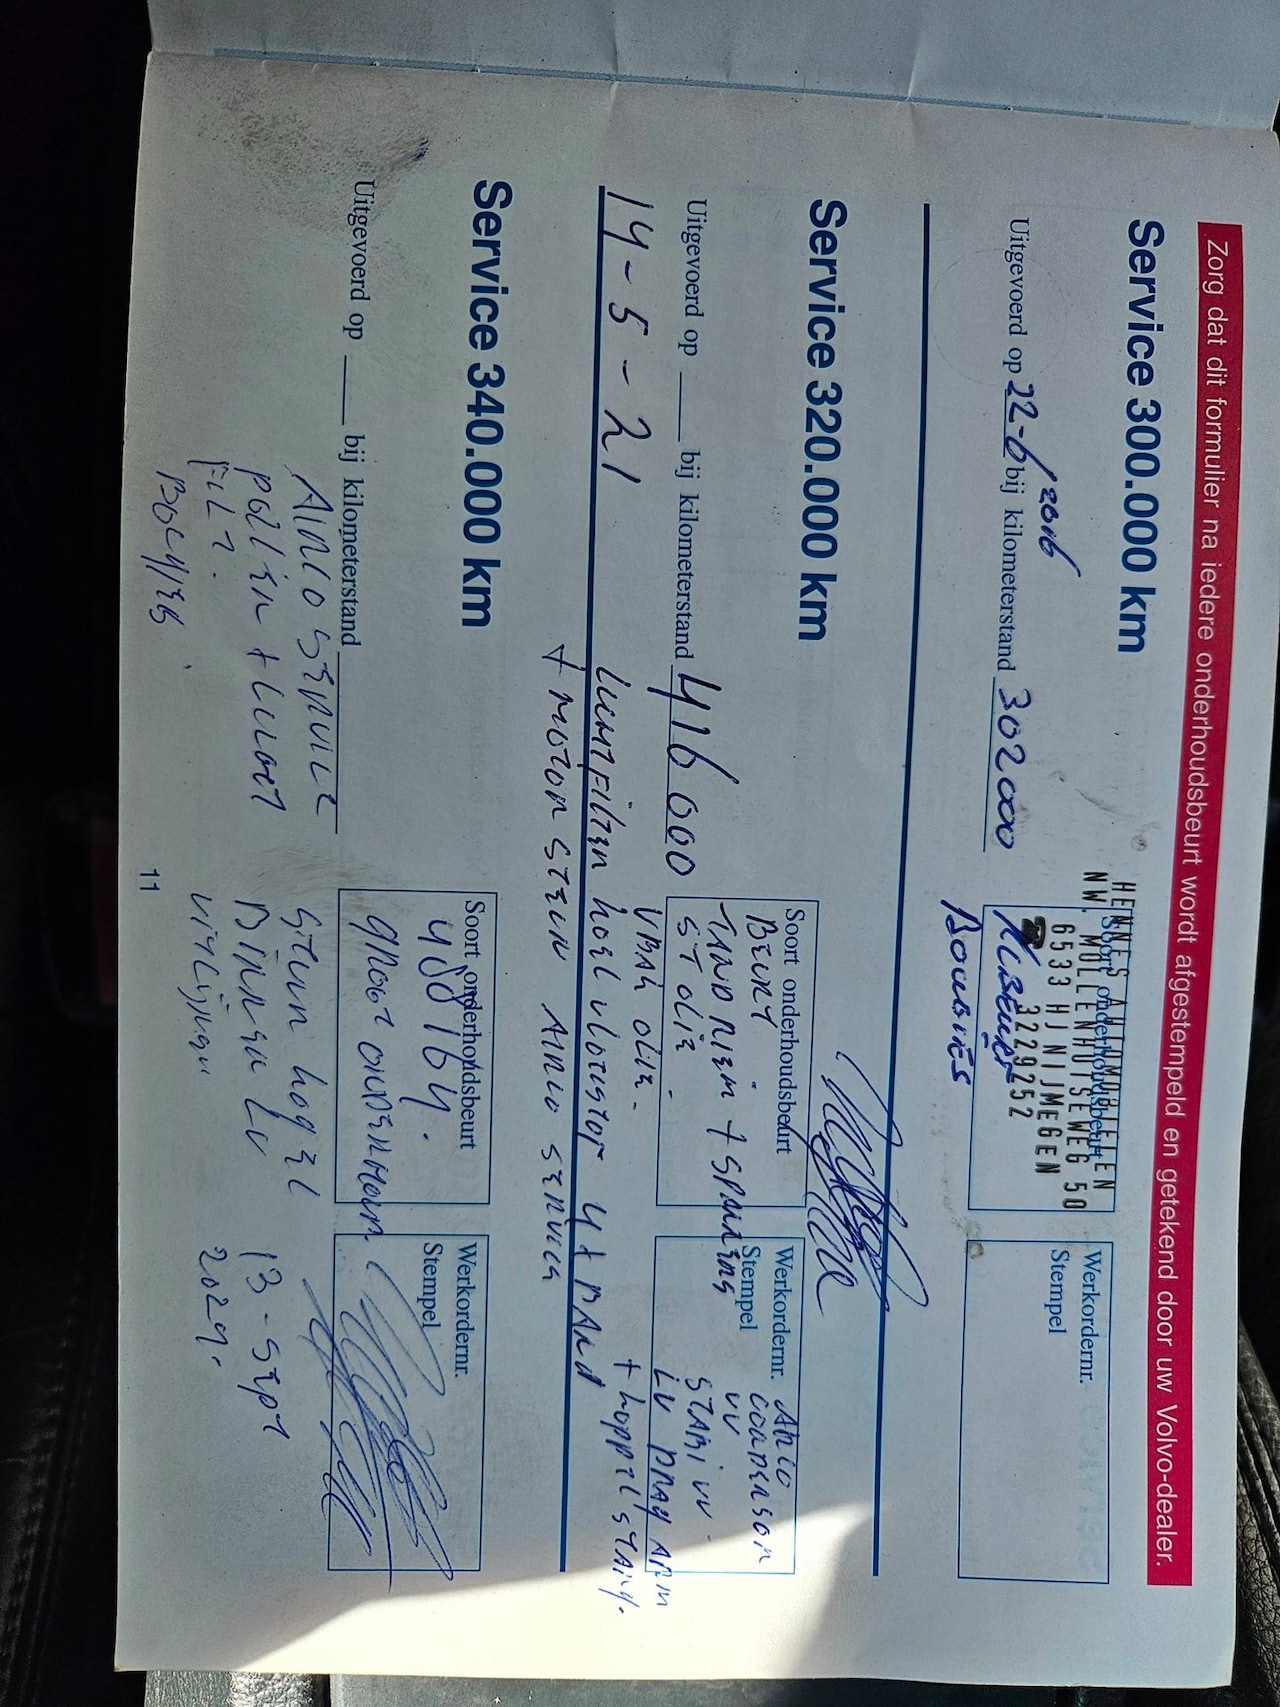 Zorg dat dit formulier na iedere onderhoudsbeurt wordt afgestempeld en getekend door uw Volvo-dealer.
Service 300.000 km
Uitgevoerd op 22-6/2016 bij kilometerstand 302000
HENNES AUTOMOBIELEN
NW. MOLLENHUTSEWEG 50
6533 HJ NIJMEGEN
☎ 3229252
Soort onderhoudsbeurt
Bougies
Werkordernr.
Stempel
Service 320.000 km
Uitgevoerd op bij kilometerstand 416000
14-5-21
Soort onderhoudsbeurt
Beurt
TAND RIEM + SPANNING
ST OLIE.
VBAK OLIE.
Luchtfilter 4x BAND
+ motor steun Airco service
Werkordernr.
Stempel
Airco
condensor
vv
STABI vv
LV DRAAGARM
+ koppelstang.
Service 340.000 km
Uitgevoerd op bij kilometerstand
Airco service
pollen + lucht
Filt.
Bougies
Soort onderhoudsbeurt
488164.
groot onderhoud
Steun kogel
Binnen LV
uitlijnen
Werkordernr.
Stempel
13-sept
2024.
11